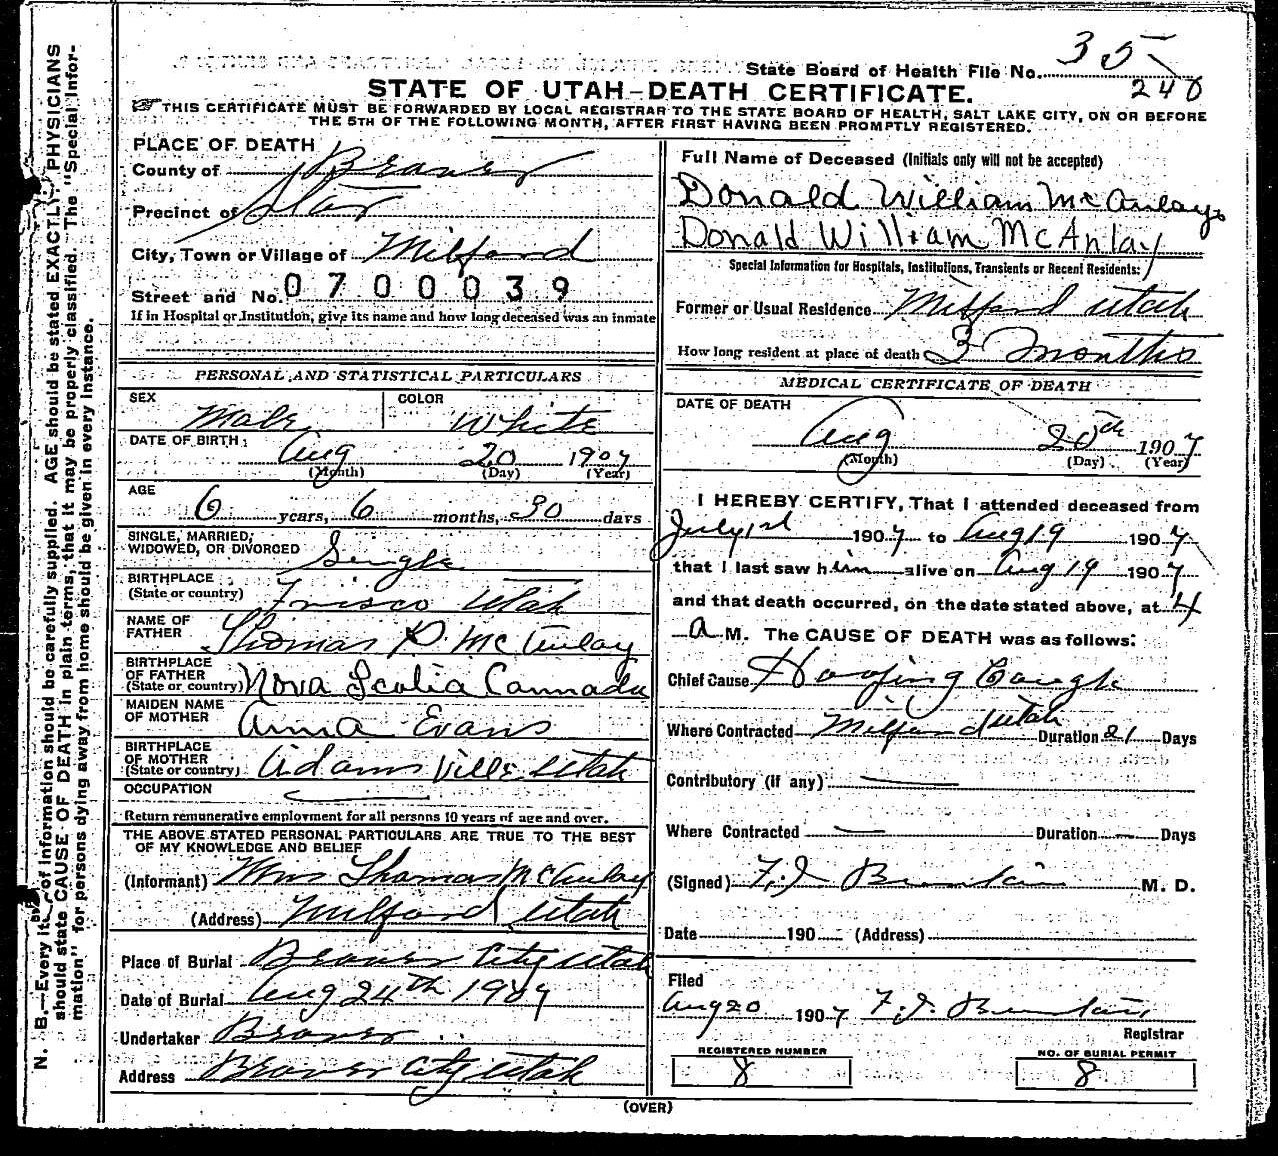 State Board of Health File No. 35
240
STATE OF UTAH—DEATH CERTIFICATE.
THIS CERTIFICATE MUST BE FORWARDED BY LOCAL REGISTRAR TO THE STATE BOARD OF HEALTH, SALT LAKE CITY, ON OR BEFORE
THE 5TH OF THE FOLLOWING MONTH, AFTER FIRST HAVING BEEN PROMPTLY REGISTERED.
PLACE OF DEATH
County of Beaver
Precinct of Star
City, Town or Village of Milford
Street and No. 0700039
If in Hospital or Institution, give its name and how long deceased was an inmate
PERSONAL AND STATISTICAL PARTICULARS
SEX Male COLOR White
DATE OF BIRTH: Aug 20 1907
(Month) (Day) (Year)
AGE
6 years, 6 months, 30 days
SINGLE, MARRIED,
WIDOWED, OR DIVORCED Single
BIRTHPLACE
(State or country) Frisco Utah
NAME OF
FATHER Thomas P. McAulay
BIRTHPLACE
OF FATHER
(State or country) Nova Scotia Cannada
MAIDEN NAME
OF MOTHER Anna Evans
BIRTHPLACE
OF MOTHER
(State or country) Adams Ville Utah
OCCUPATION
Return remunerative employment for all persons 10 years of age and over.
THE ABOVE STATED PERSONAL PARTICULARS ARE TRUE TO THE BEST
OF MY KNOWLEDGE AND BELIEF
(Informant) Mrs Thomas McAulay
(Address) Milford Utah
Place of Burial Beaver City Utah
Date of Burial Aug 24th 1909
Undertaker Beaver
Address Beaver City Utah
Full Name of Deceased (Initials only will not be accepted)
Donald William McAulay
Donald William McAnlay
Special Information for Hospitals, Institutions, Transients or Recent Residents:
Former or Usual Residence Milford Utah
How long resident at place of death 3 months
MEDICAL CERTIFICATE OF DEATH
DATE OF DEATH
Aug 20th 1907
(Month) (Day) (Year)
I HEREBY CERTIFY, That I attended deceased from
July 1st 1907 to Aug 19 1907
that I last saw him alive on Aug 19 1907
and that death occurred, on the date stated above, at 4
A M. The CAUSE OF DEATH was as follows:
Chief Cause Hooping Cough
Where Contracted Milford Utah Duration 21 Days
Contributory (if any)
Where Contracted Duration Days
(Signed) F. J. M. D.
Date 190 (Address)
Filed
Aug 20 1907 F. J.
Registrar
REGISTERED NUMBER
8
NO. OF BURIAL PERMIT
8
(OVER)
N. B.—Every item of information should be carefully supplied. AGE should be stated EXACTLY. PHYSICIANS
should state CAUSE OF DEATH in plain terms, that it may be properly classified. The "Special Infor-
mation" for persons dying away from home should be given in every instance.